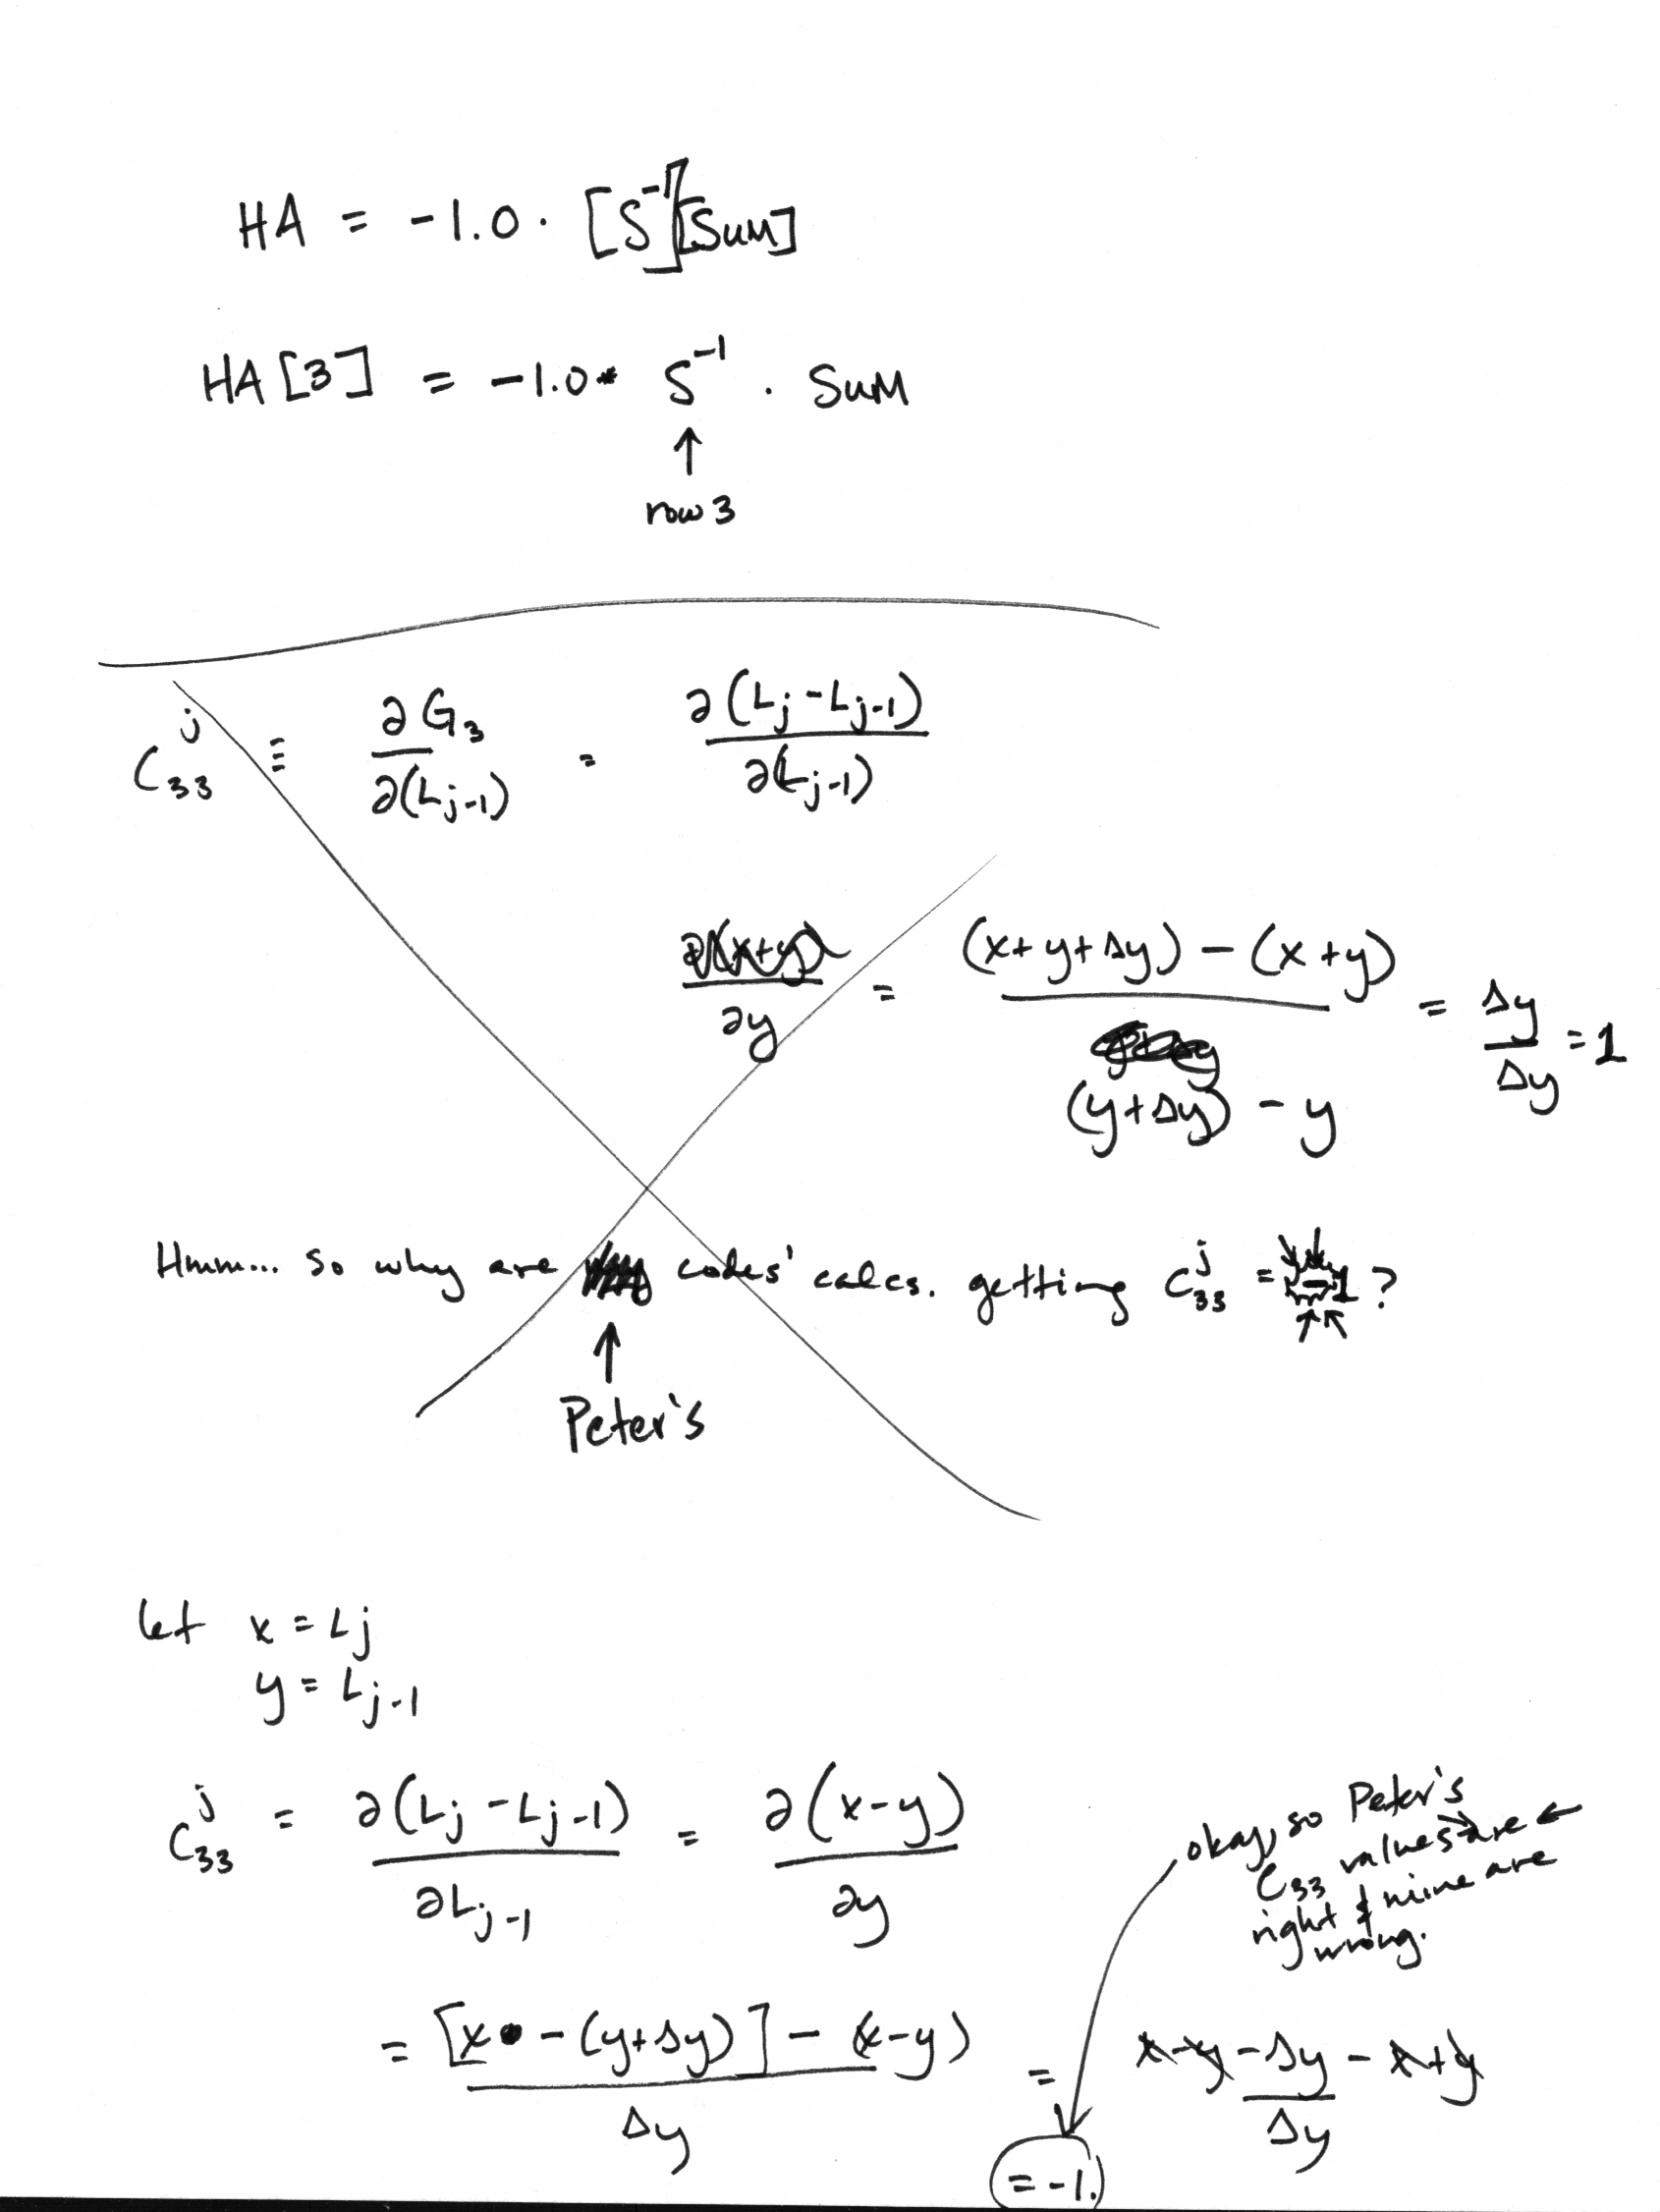 HA = -1.0 · [S⁻¹][SUM]
HA[3] = -1.0 * S⁻¹ · SUM
↑
row 3
C₃₃ʲ ≡ ∂G₃/∂(Lj-1) = ∂(Lj - Lj-1)/∂(Lj-1)
∂(x+y)/∂y = (x+y+Δy) - (x+y)/(y+Δy) - y = Δy/Δy = 1
Hmm... so why are codes' calcs. getting C₃₃ʲ = -1?
↑
Peter's
let x = Lj
y = Lj-1
C₃₃ʲ = ∂(Lj - Lj-1)/∂Lj-1 = ∂(x-y)/∂y
okay, so Peter's
C₃₃ values are
right & mine are
wrong.
= [x - (y+Δy)] - (x-y)/Δy = x-y-Δy-x+y/Δy
= -1.